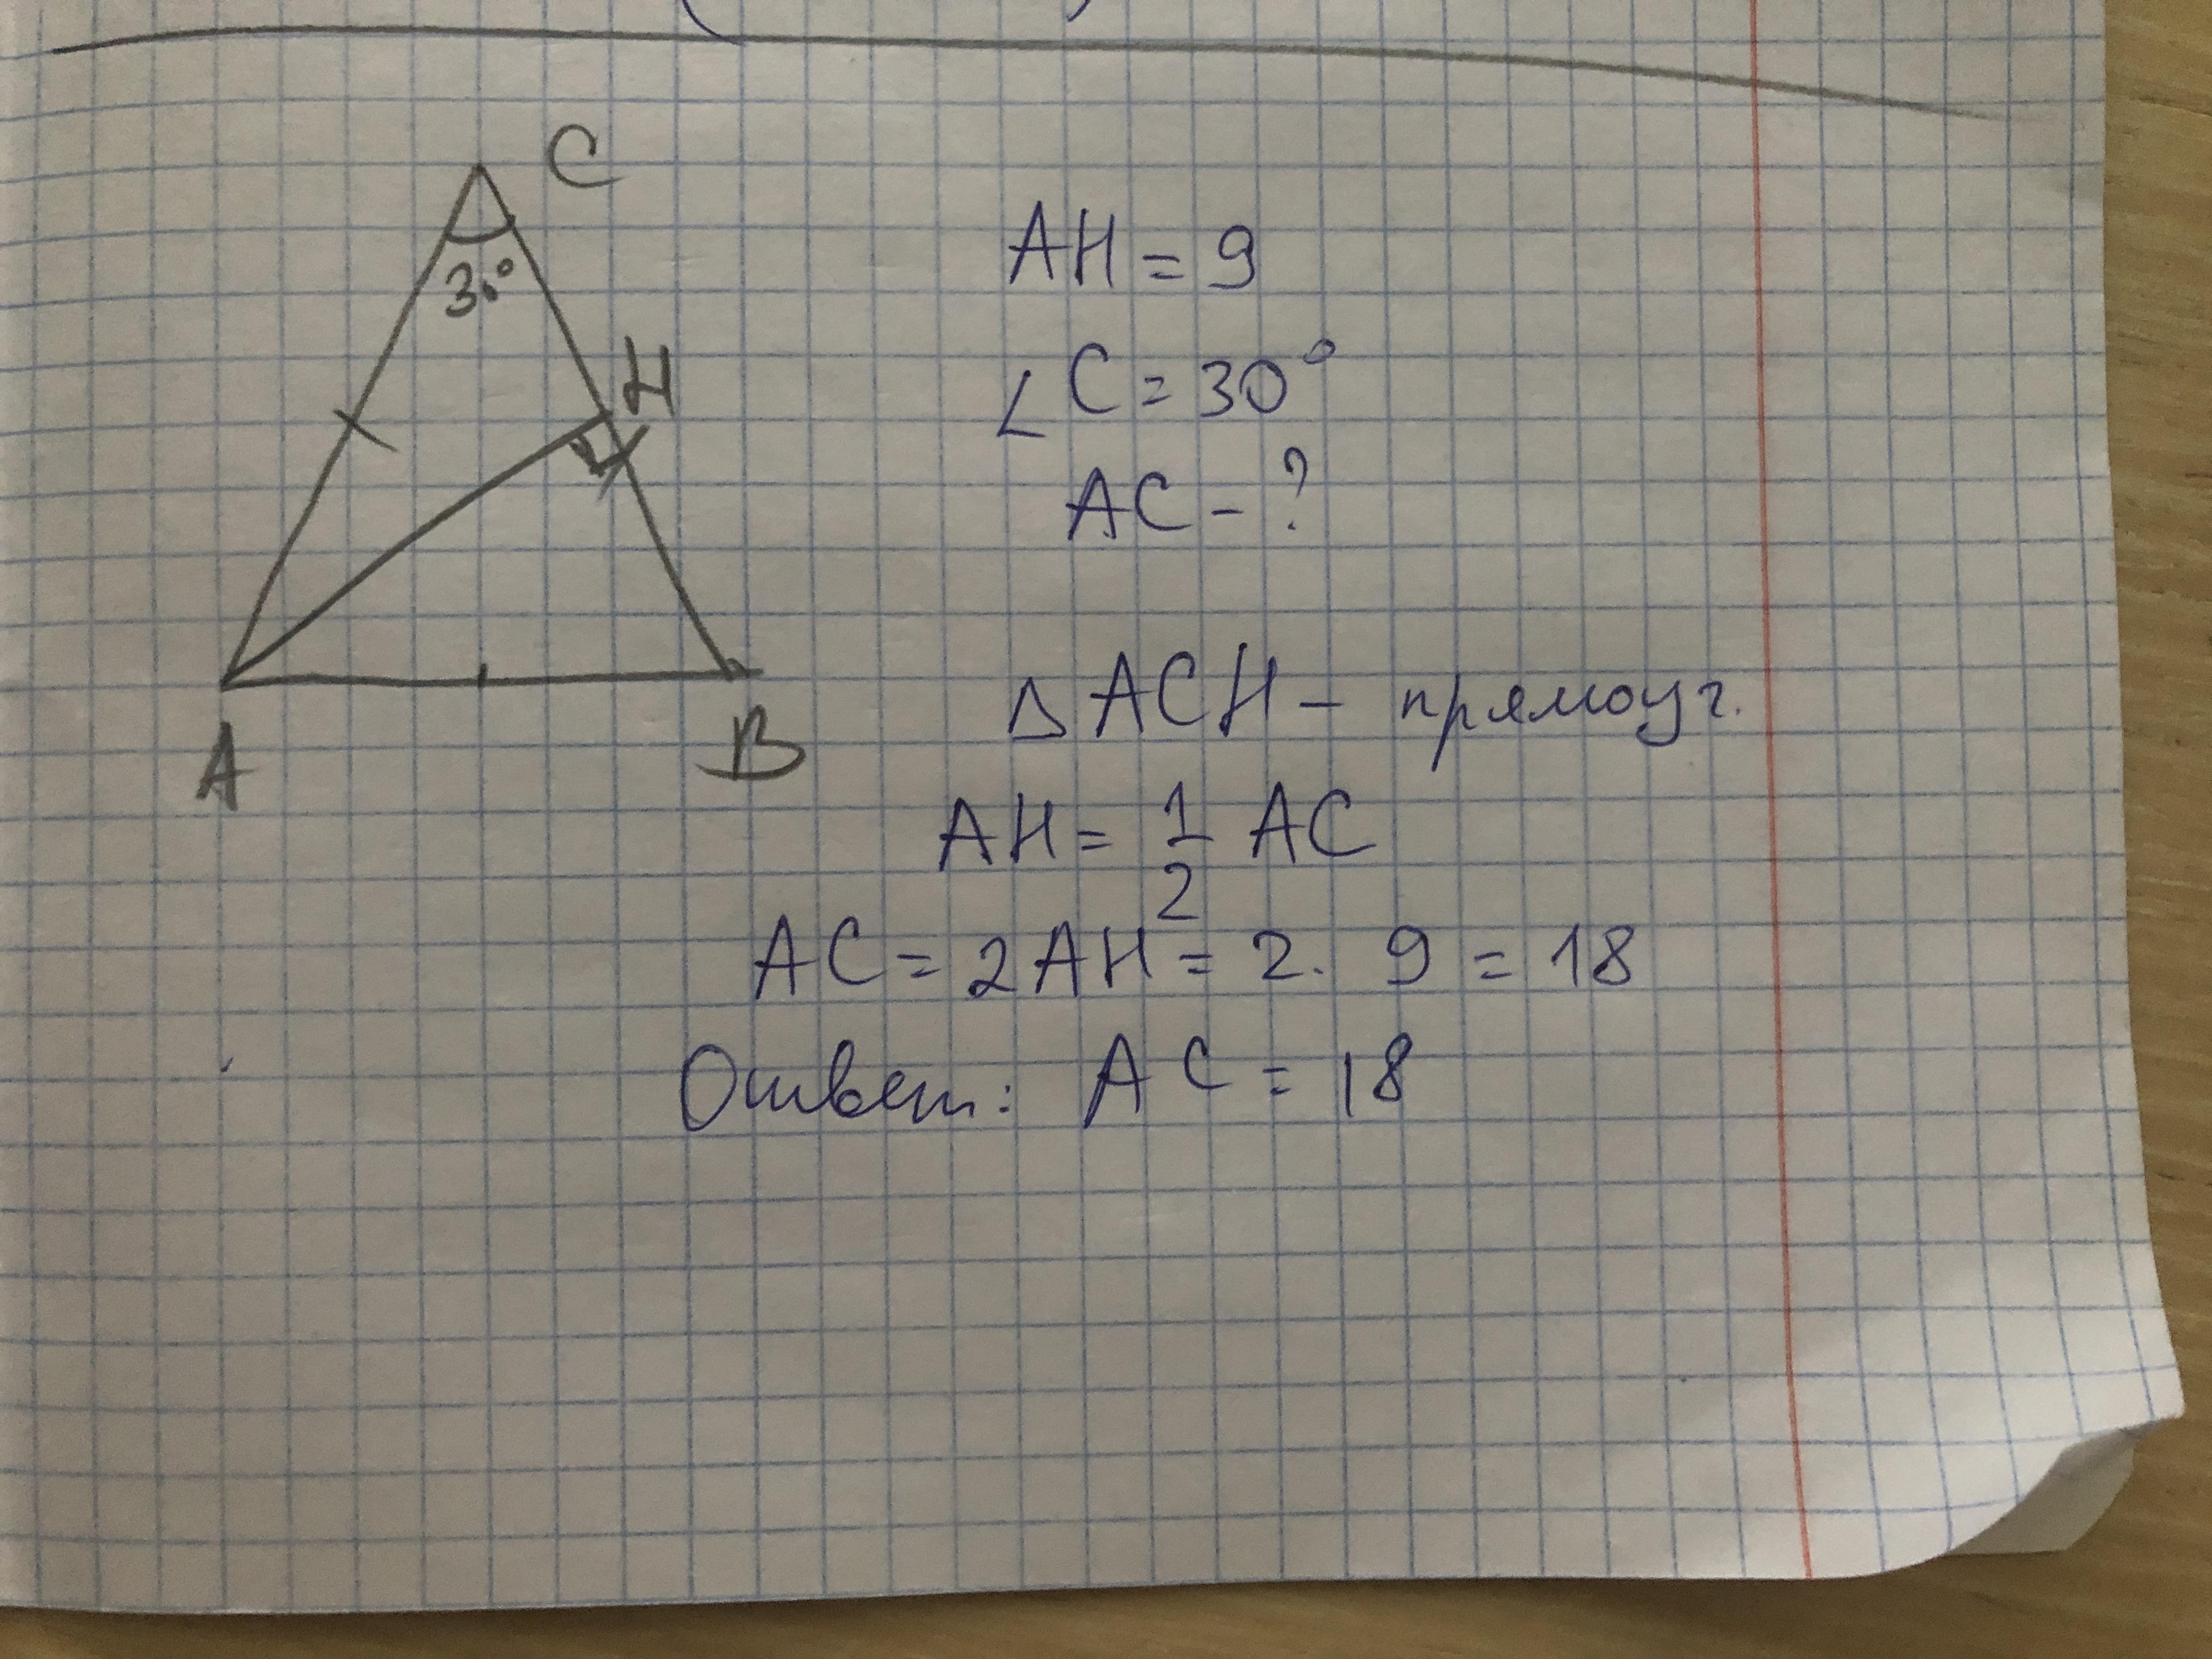 C
30°
H
A
B
AH = 9
∠C = 30°
AC - ?
△ACH - прямоуг.
AH = 1/2 AC
AC = 2AH = 2 · 9 = 18
Ответ: AC = 18